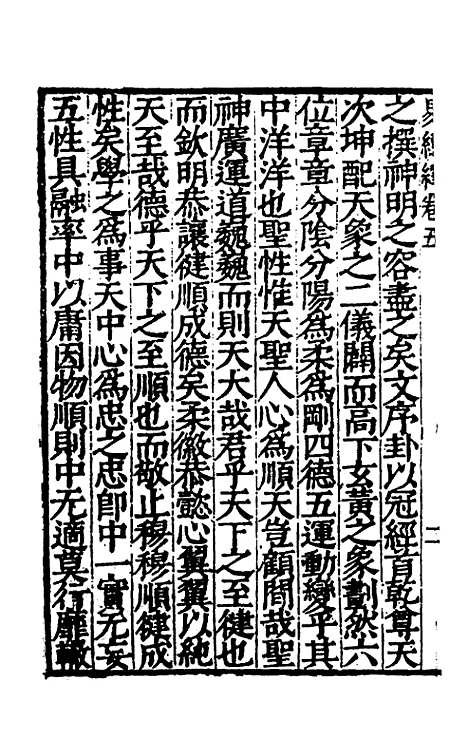 易經繹卷五
二
之撰神明之容盡之矣文序卦以冠經首乾尊天
次坤配天象之二儀闢而高下玄黃之象劃然六
位章章分陰分陽為柔為剛四德五運動變乎其
中洋洋也聖性惟天聖人心為順天豈顧問哉聖
神廣運道巍巍而則天大哉君乎天下之至健也
而欽明恭讓健順成德矣柔徽恭懿心翼翼以純
天至哉德乎天下之至順也而敬止穆穆順健成
性矣學之為事天中心為忠之忠即中一實无妄
五性具融率中以庸因物順則中无適莫行靡轍